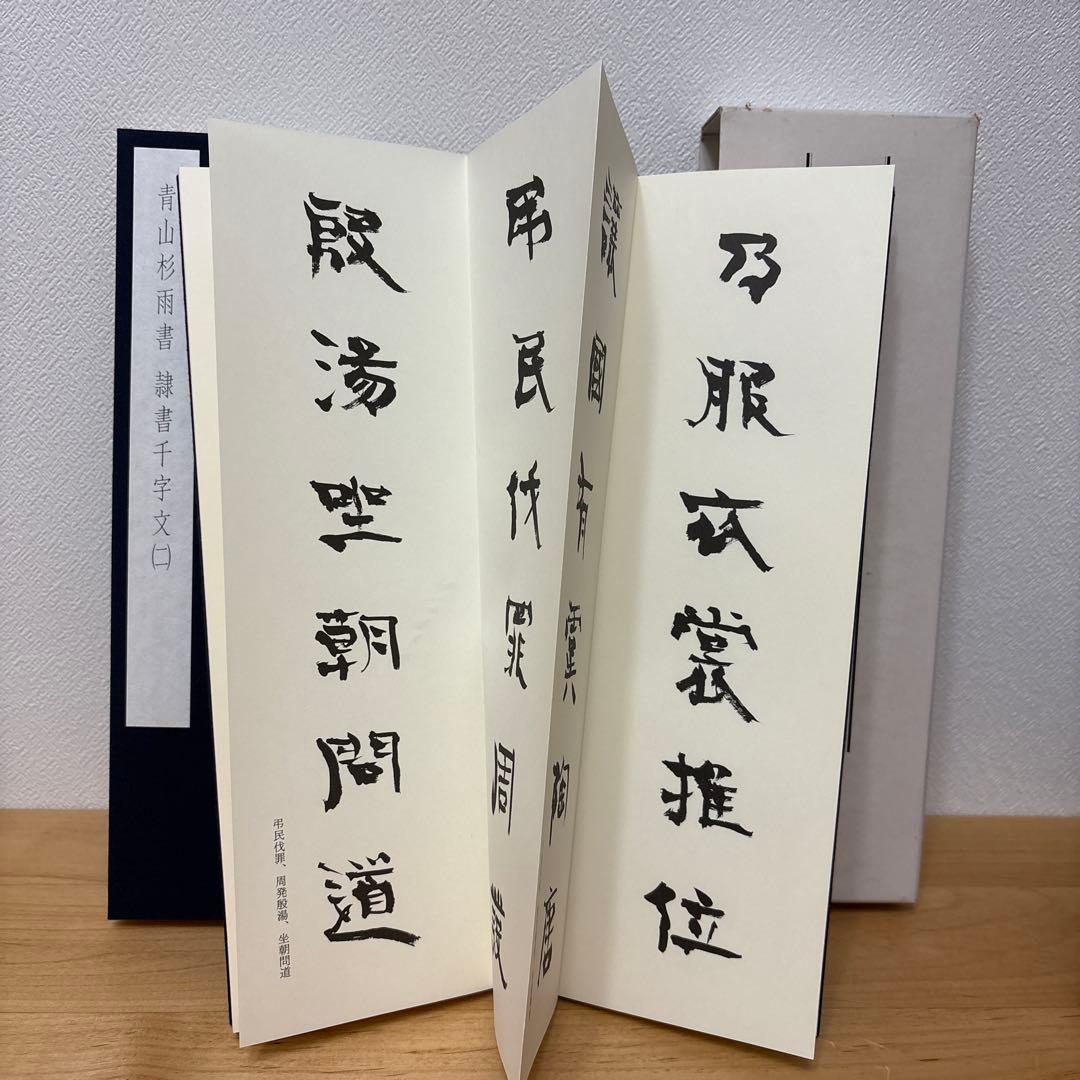 青山杉雨書 隷書千字文(二)
乃服衣裳推位
讓國有虞陶唐
弔民伐罪周發
殷湯坐朝問道
弔民伐罪、周発殷湯、坐朝問道